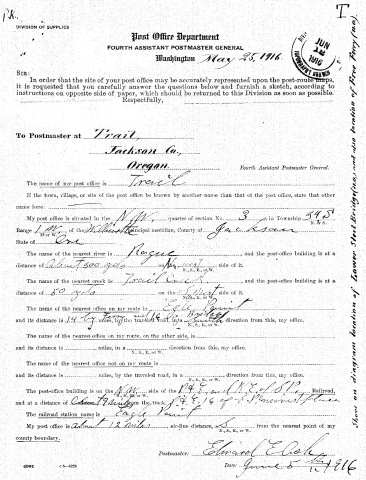 P.K.
T
DIVISION OF SUPPLIES
Post Office Department
FOURTH ASSISTANT POSTMASTER GENERAL
Washington May 25, 1916.
JUN
1916
SIR:
In order that the site of your post office may be accurately represented upon the post-route maps,
it is requested that you carefully answer the questions below and furnish a sketch, according to
instructions on opposite side of paper, which should be returned to this Division as soon as possible.
Respectfully,
To Postmaster at Trail,
Jackson Co.,
Oregon.
Fourth Assistant Postmaster General.
The name of my post office is Trail
If the town, village, or site of the post office be known by another name than that of the post office, state that other
name here:
My post office is situated in the N.W. quarter of section No. 3, in Township 34 S
Range 1, Willamette principal meridian, County of Jackson
State of Ore
The name of the nearest river is Rogue, and the post-office building is at a
distance of about 500 yds on the side of it.
The name of the nearest creek is Trail Creek, and the post-office building is at a
distance of 50 yds on the side of it.
The name of the nearest office on my route is Eagle Point
and its distance is 14, by the traveled road, in a direction from this, my office.
The name of the nearest office on my route, on the other side, is
and its distance is miles, in a direction from this, my office.
The name of the nearest office not on my route is
and its distance is miles, by the traveled road, in a direction from this, my office.
The post-office building is on the N.W. side of the Railroad,
and at a distance of about 9 miles from the track.
The railroad station name is Eagle Point
My post office is about 12 miles air-line distance S from the nearest point of my
county boundary.
Postmaster: Edward E. Ash
Date: June 5, 1916